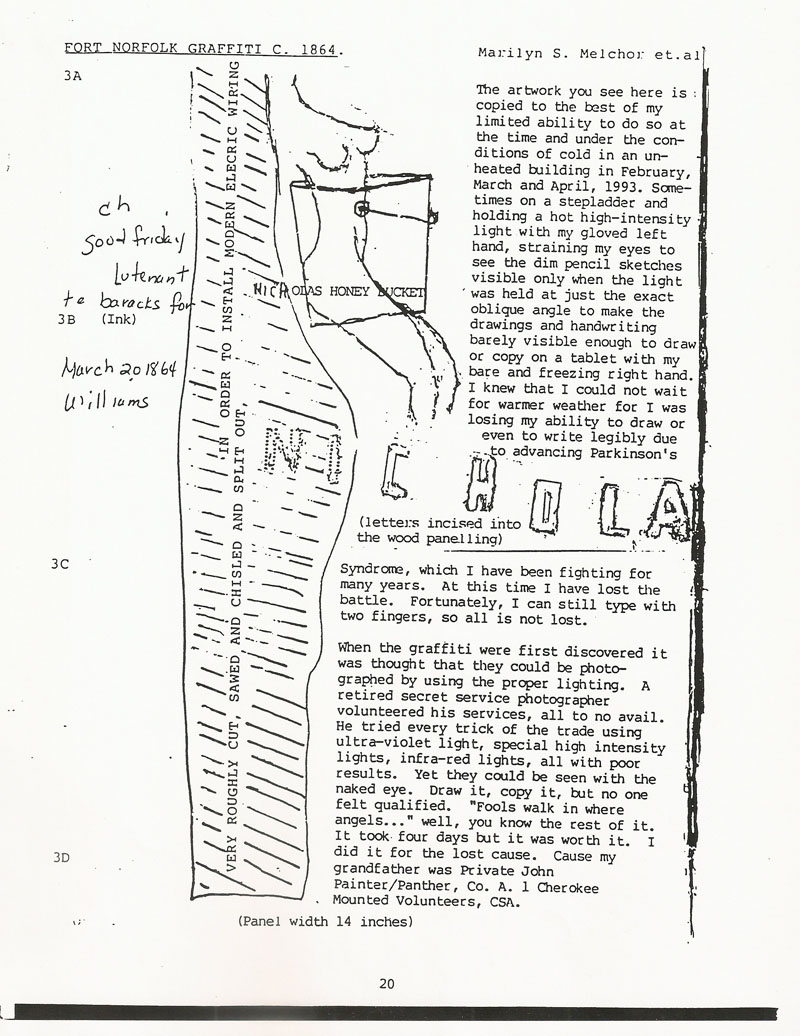 FORT NORFOLK GRAFFITI C. 1864.
Marilyn S. Melchor et.al
3A
The artwork you see here is
copied to the best of my
limited ability to do so at
the time and under the con-
ditions of cold in an un-
heated building in February,
March and April, 1993. Some-
times on a stepladder and
holding a hot high-intensity
light with my gloved left
hand, straining my eyes to
see the dim pencil sketches
visible only when the light
was held at just the exact
oblique angle to make the
drawings and handwriting
barely visible enough to draw
or copy on a tablet with my
bare and freezing right hand.
I knew that I could not wait
for warmer weather for I was
losing my ability to draw or
even to write legibly due
to advancing Parkinson's
ch
good friday
Lutenant
te baracks for
3B (Ink)
March 20 1864
Williams
NICHOLAS HONEY BUCKET
VERY ROUGHLY CUT, SAWED AND CHISLED AND SPLIT OUT,
IN ORDER TO INSTALL MODERN ELECRIC WIRING
NICHOLA
(letters incised into
the wood panelling)
3C
Syndrome, which I have been fighting for
many years. At this time I have lost the
battle. Fortunately, I can still type with
two fingers, so all is not lost.
When the graffiti were first discovered it
was thought that they could be photo-
graphed by using the proper lighting. A
retired secret service photographer
volunteered his services, all to no avail.
He tried every trick of the trade using
ultra-violet light, special high intensity
lights, infra-red lights, all with poor
results. Yet they could be seen with the
naked eye. Draw it, copy it, but no one
felt qualified. "Fools walk in where
angels..." well, you know the rest of it.
It took four days but it was worth it. I
did it for the lost cause. Cause my
grandfather was Private John
Painter/Panther, Co. A. 1 Cherokee
Mounted Volunteers, CSA.
3D
(Panel width 14 inches)
20